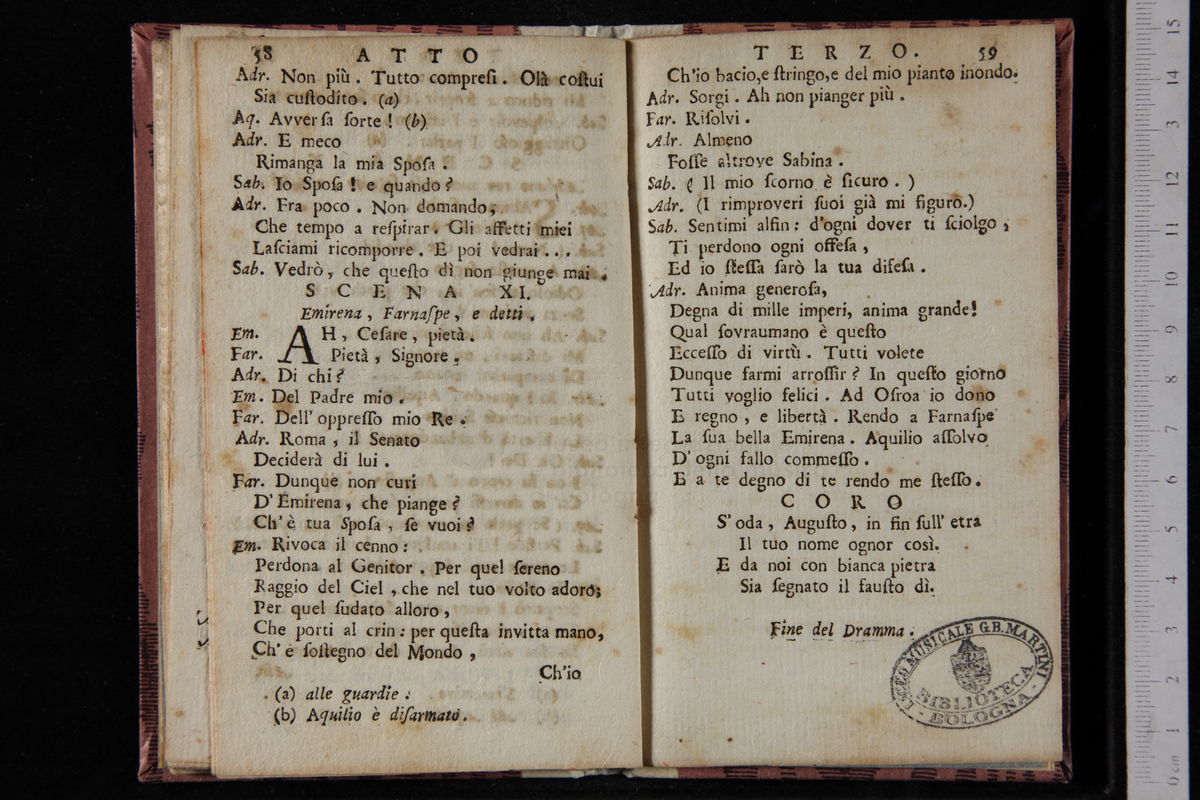 58 ATTO
Adr. Non più. Tutto compreſi. Olà coſtui
Sia cuſtodito. (a)
Aq. Avverſa ſorte! (b)
Adr. E meco
Rimanga la mia Spoſa.
Sab. Io Spoſa! e quando?
Adr. Fra poco. Non domando,
Che tempo a reſpirar. Gli affetti miei
Laſciami ricomporre. E poi vedrai...
Sab. Vedrò, che queſto dì non giunge mai.
SCENA XI.
Emirena, Farnaſpe, e detti.
Em. AH, Ceſare, pietà.
Far. Pietà, Signore.
Adr. Di chi?
Em. Del Padre mio.
Far. Dell' oppreſſo mio Re.
Adr. Roma, il Senato
Deciderà di lui.
Far. Dunque non curi
D' Emirena, che piange?
Ch' è tua Spoſa, ſe vuoi?
Em. Rivoca il cenno:
Perdona al Genitor. Per quel ſereno
Raggio del Ciel, che nel tuo volto adoro;
Per quel ſudato alloro,
Che porti al crin: per queſta invitta mano,
Ch' è ſoſtegno del Mondo,
Ch'io
(a) alle guardie:
(b) Aquilio è diſarmato.
TERZO. 59
Ch'io bacio, e ſtringo, e del mio pianto inondo.
Adr. Sorgi. Ah non pianger più.
Far. Riſolvi.
Adr. Almeno
Foſſe altrove Sabina.
Sab. (Il mio ſcorno è ſicuro.)
Adr. (I rimproveri ſuoi già mi figuro.)
Sab. Sentimi alfin: d'ogni dover ti ſciolgo,
Ti perdono ogni offeſa,
Ed io ſteſſa ſarò la tua difeſa.
Adr. Anima generoſa,
Degna di mille imperi, anima grande!
Qual ſovraumano è queſto
Ecceſſo di virtù. Tutti volete
Dunque farmi arroſſir? In queſto giorno
Tutti voglio felici. Ad Oſroa io dono
E regno, e libertà. Rendo a Farnaſpe
La ſua bella Emirena. Aquilio aſſolvo
D' ogni fallo commeſſo.
E a te degno di te rendo me ſteſſo.
CORO
S' oda, Auguſto, in fin ſull' etra
Il tuo nome ognor così.
E da noi con bianca pietra
Sia ſegnato il fauſto dì.
Fine del Dramma.
LICEO MUSICALE G.B. MARTINI
BIBLIOTECA
- BOLOGNA -
0 cm 1 2 3 4 5 6 7 8 9 10 11 12 3 14 15